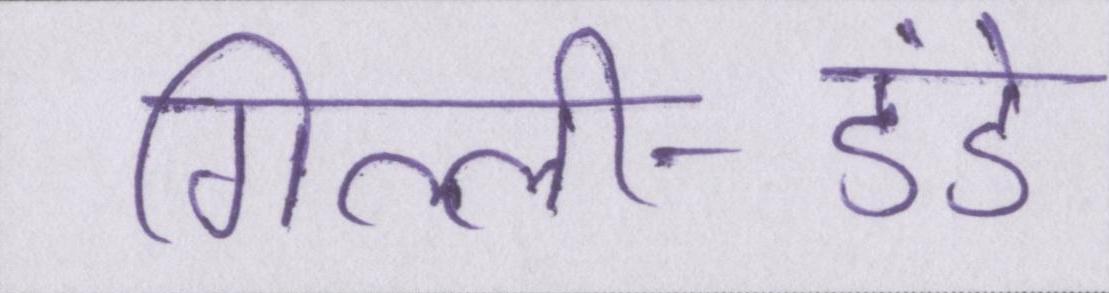 गिल्ली-डंडे